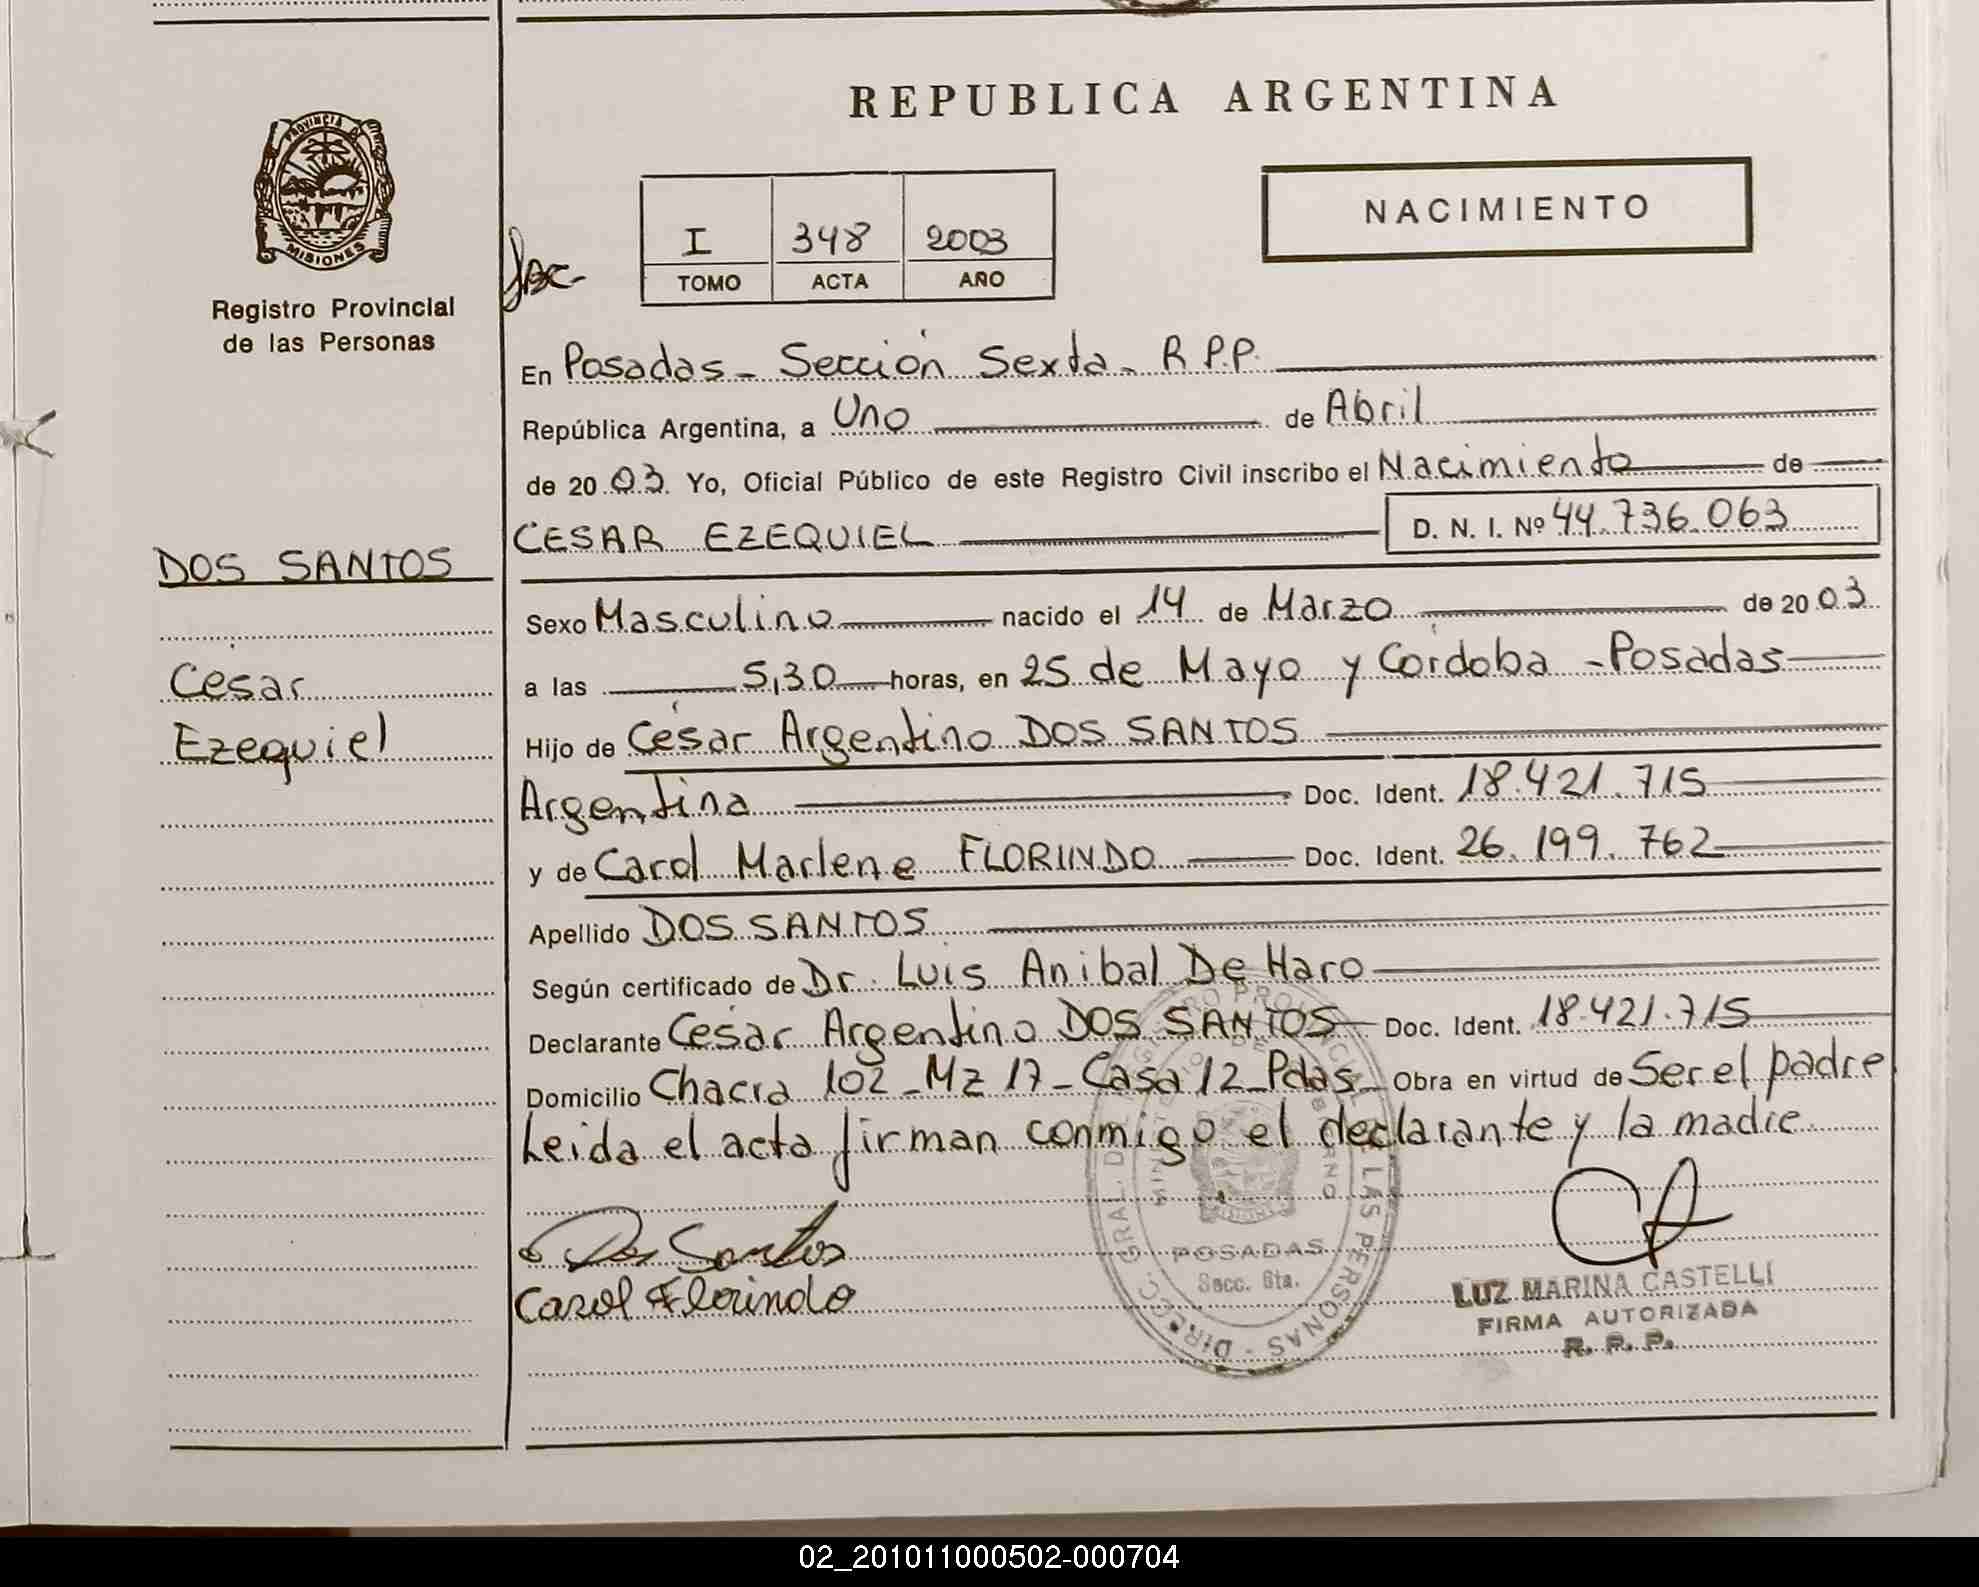 REPUBLICA ARGENTINA
PROVINCIA DE
MISIONES
Registro Provincial
de las Personas
NACIMIENTO
I 348 2003
TOMO ACTA AÑO
En Posadas - Sección Sexta - R.P.P.
República Argentina, a Uno de Abril
de 2003. Yo, Oficial Público de este Registro Civil inscribo el Nacimiento de
CESAR EZEQUIEL D. N. I. Nº 44.736.063
DOS SANTOS
Sexo Masculino nacido el 14 de Marzo de 2003
César
a las 5,30 horas, en 25 de Mayo y Córdoba - Posadas
Ezequiel
Hijo de César Argentino DOS SANTOS
Argentina Doc. Ident. 18.421.715
y de Carol Marlene FLORINDO Doc. Ident. 26.199.762
Apellido DOS SANTOS
Según certificado de Dr. Luis Anibal De Haro
Declarante César Argentino DOS SANTOS Doc. Ident. 18.421.715
Domicilio Chacra 102 - Mz 17 - Casa 12 - Pdas - Obra en virtud de Ser el padre
Leida el acta firman conmigo el declarante y la madre
Dos Santos
Carol Florindo
DIRECC. GRAL. DEL REGISTRO PROVINCIAL DE LAS PERSONAS
MINISTERIO DE GOBIERNO
POSADAS
Secc. 6ta.
LUZ MARINA CASTELLI
FIRMA AUTORIZADA
R. P. P.
02_201011000502-000704